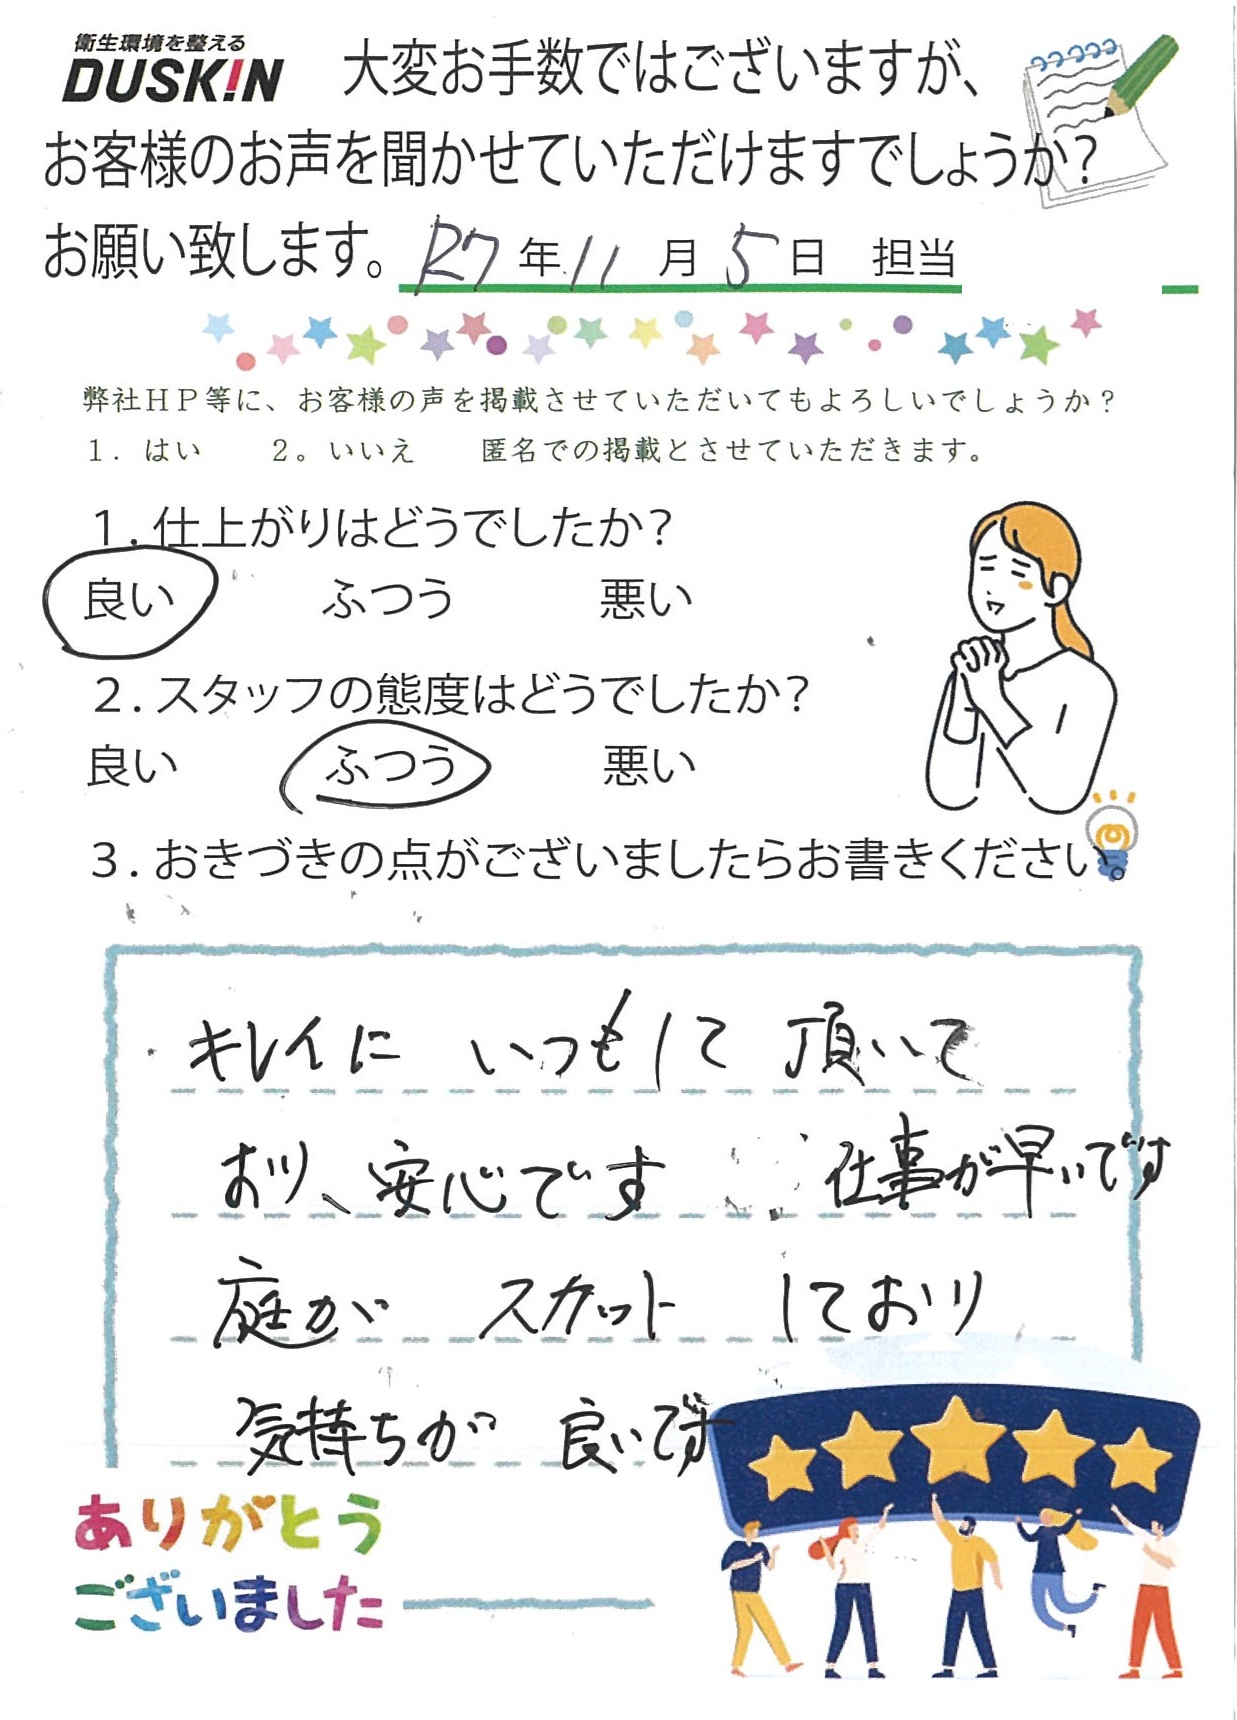 衛生環境を整える
DUSKIN 大変お手数ではございますが、
お客様のお声を聞かせていただけますでしょうか?
お願い致します。 R7年11月5日 担当
弊社HP等に、お客様の声を掲載させていただいてもよろしいでしょうか？
1. はい 2。いいえ 匿名での掲載とさせていただきます。
1.仕上がりはどうでしたか?
良い ふつう 悪い
2.スタッフの態度はどうでしたか?
良い ふつう 悪い
3.おきづきの点がございましたらお書きください。
キレイに いつもして 頂いて
おり、安心です 仕事が早いです
庭が スカット しており
気持ちが 良いです
ありがとう
ございました